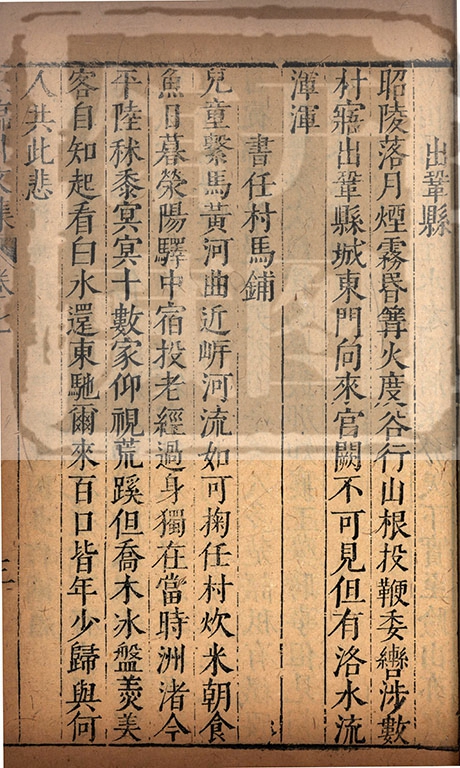 出鞏縣
昭陵落月煙霧昏篝火度谷行山根投鞭委轡涉數
村寤出鞏縣城東門向來宮闕不可見但有洛水流
渾渾
書任村馬鋪
兒童繫馬黃河曲近岍河流如可掬任村炊米朝食
魚日暮滎陽驛中宿投老經過身獨在當時洲渚今
平陸秫黍冥冥十數家仰視荒蹊但喬木冰盤羹美
客自知起看白水還東馳爾來百口皆年少歸與何
人共此悲
臨川文集 卷七
三